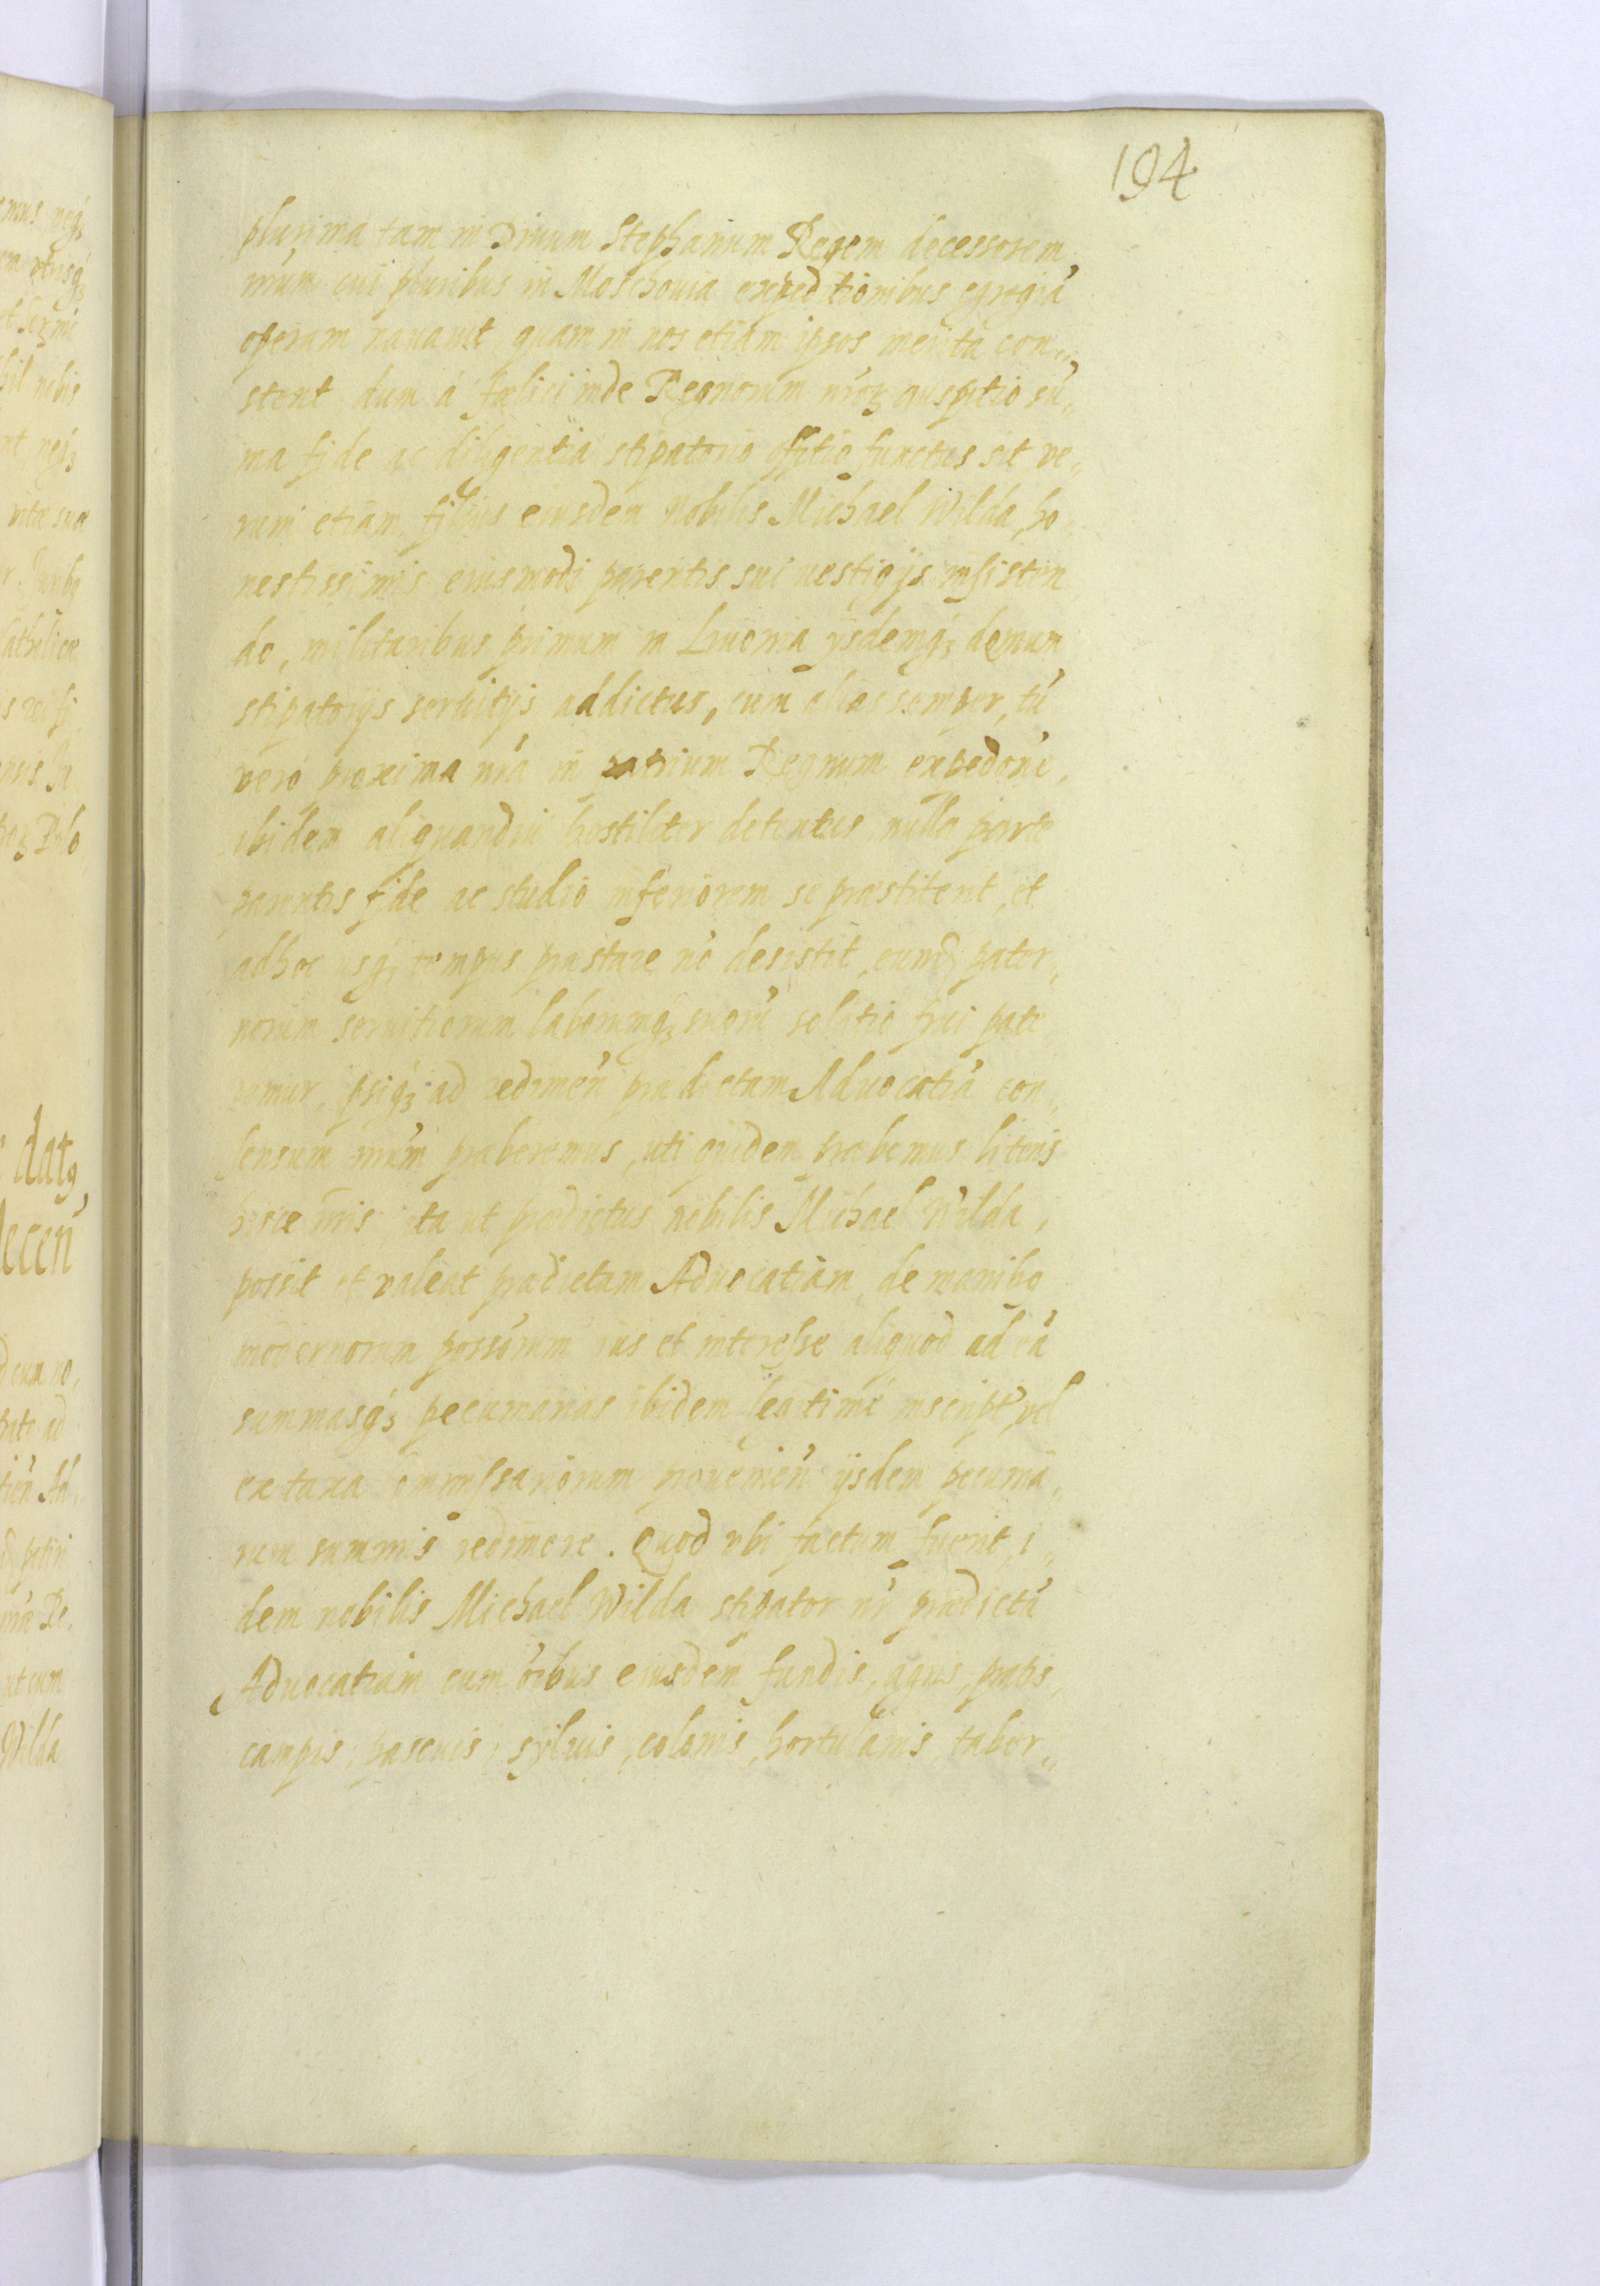 194
plurima tam in Diuum Stephanum Regem decessorem
nrum cui pluribus in Moschouia expeditionibus egregiā
operam nauauit quam in nos etiam ipsos merita con„
stent dum á fælici inde Regnorum nrorꝫ auspitio sū„
ma fide ac diligentia stipatorio offitio functus sit ve„
rum etiam filius eiusdem Nobilis Michael Wilda, ho„
nestissimis eiusmodi parentis sui uestigijs insisten
do, militaribus primum in Liuonia ijsdemqꝫ demum
stipatorijs seruitijs addictus, cum alias semper, tū
vero proxima nra in patrium Regnum expedone,
ibidem aliquandiu hostiliter detentus nulla parte
parentis fide ac studio inferiorem se præstiterit, et
adhoc usqꝫ tempus præstare nō desistit, eumqꝫ pater„
norum seruitiorum laborumqꝫ suorū solatio frui pate
remur, ipsiqꝫ ad redimen prædictam Aduocatiā con„
sensum nrum præberemus, uti quidem præbemus literis
hisce nris ita ut prædictus nobilis Michael Wilda,
possit et valeat prædictam Aduocatiam, de manibꝫ
modernorum possorum ius et interesse aliquod ad eā
summasqꝫ pecuniarias ibidem legitime inscript vel
ex taxa commissariorum prouenien ijsdem pecunia„
rum summis redimere. Quod vbi factum fuerit, i„
dem nobilis Michael Wilda stipator nr prædictā
Aduocatiam cum oibus eiusdem fundis, agris, pratis,
campis, pascuis, syluis, colonis, hortulanis, taber„